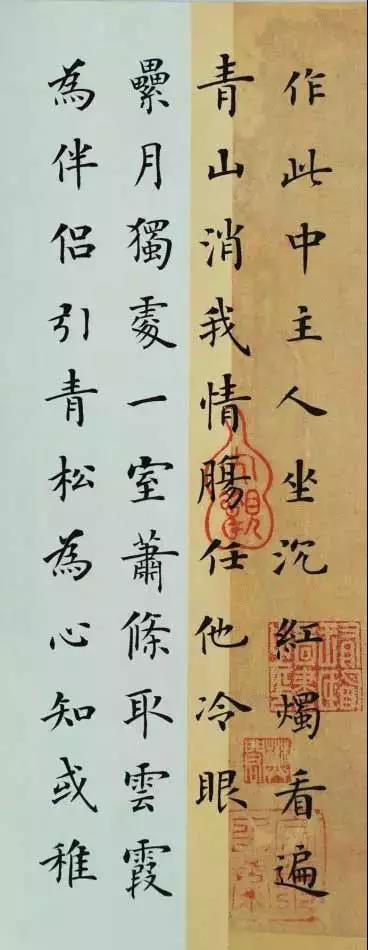 作此中主人坐沉紅燭看遍
青山消我情腸任他冷眼
纍月獨處一室蕭條取雲霞
為伴侶引青松為心知或稚